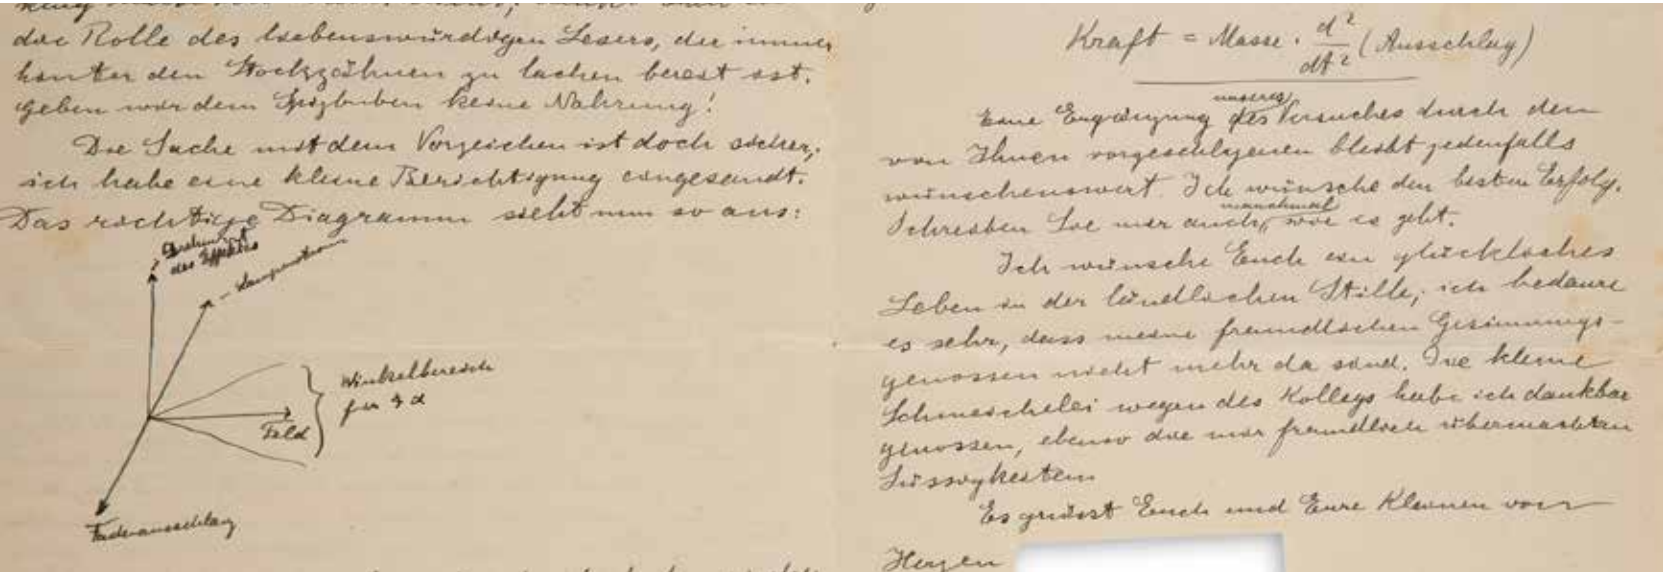 die Rolle des liebenswürdigen Lesers, der immer
hinter den Stockzähnen zu lachen bereit ist.
Geben wir dem Spitzbuben keine Nahrung!
Die Sache mit dem Vorzeichen ist doch sicher,
ich habe eine kleine Berichtigung eingesandt.
Das richtige Diagramm sieht nun so aus:
des Effektes
Winkelbereich
für ∢ α
Feld
Fadenausschlag
Kraft = Masse · d²/dt² (Ausschlag)
unseres
Eine Ergänzung des Versuches durch den
von Ihnen vorgeschlagenen bleibt jedenfalls
wünschenswert. Ich wünsche den besten Erfolg.
manchmal
Schreiben Sie mir auch, wie es geht.
Ich wünsche Euch ein glückliches
Leben in der ländlichen Stille; ich bedaure
es sehr, dass meine freundlichen Gesinnungs-
genossen nicht mehr da sind. Die kleine
Schmeichelei wegen des Kollegs habe ich dankbar
genossen, ebenso die mir freundlich übermachten
Süssigkeiten
Es grüsst Euch und Eure Kleinen von
Herzen